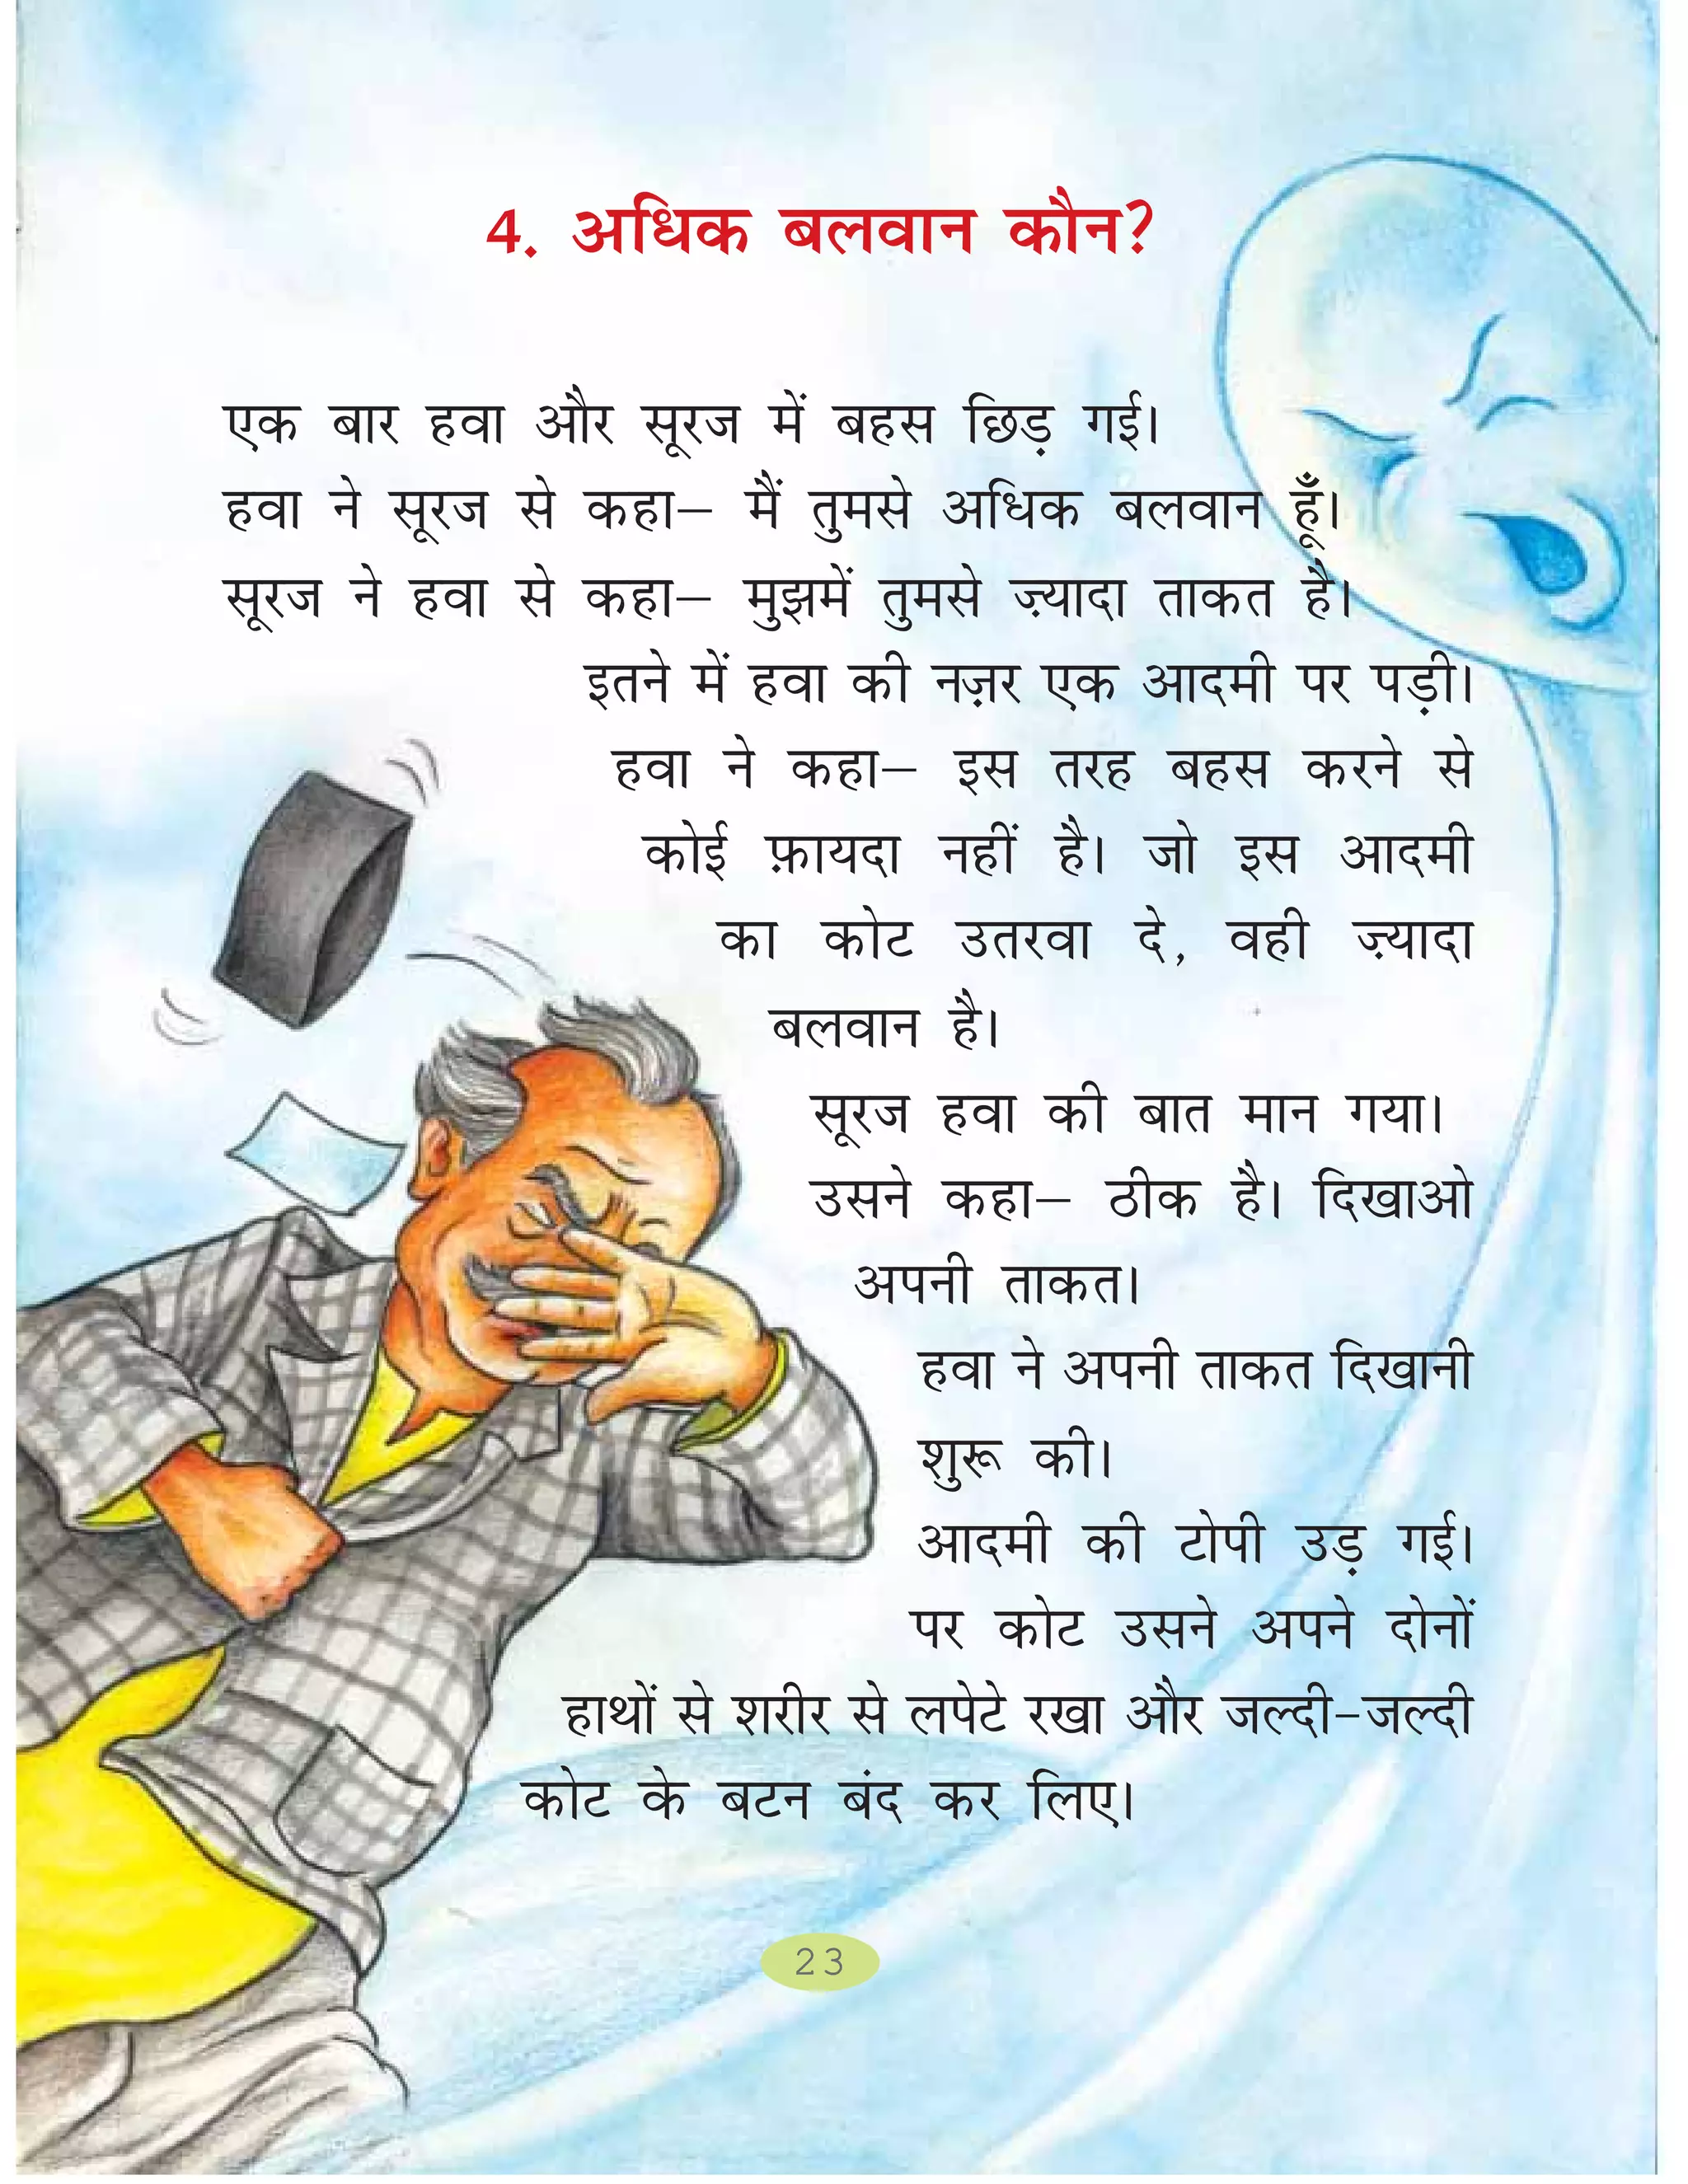 4. अधिक बलवान कौन?
एक बार हवा और सूरज में बहस छिड़ गई।
हवा ने सूरज से कहा– मैं तुमसे अधिक बलवान हूँ।
सूरज ने हवा से कहा– मुझमें तुमसे ज़्यादा ताकत है।
इतने में हवा की नज़र एक आदमी पर पड़ी।
हवा ने कहा– इस तरह बहस करने से
कोई फ़ायदा नहीं है। जो इस आदमी
का कोट उतरवा दे, वही ज़्यादा
बलवान है।
सूरज हवा की बात मान गया।
उसने कहा– ठीक है। दिखाओ
अपनी ताकत।
हवा ने अपनी ताकत दिखानी
शुरू की।
आदमी की टोपी उड़ गई।
पर कोट उसने अपने दोनों
हाथों से शरीर से लपेटे रखा और जल्दी-जल्दी
कोट के बटन बंद कर लिए।
23